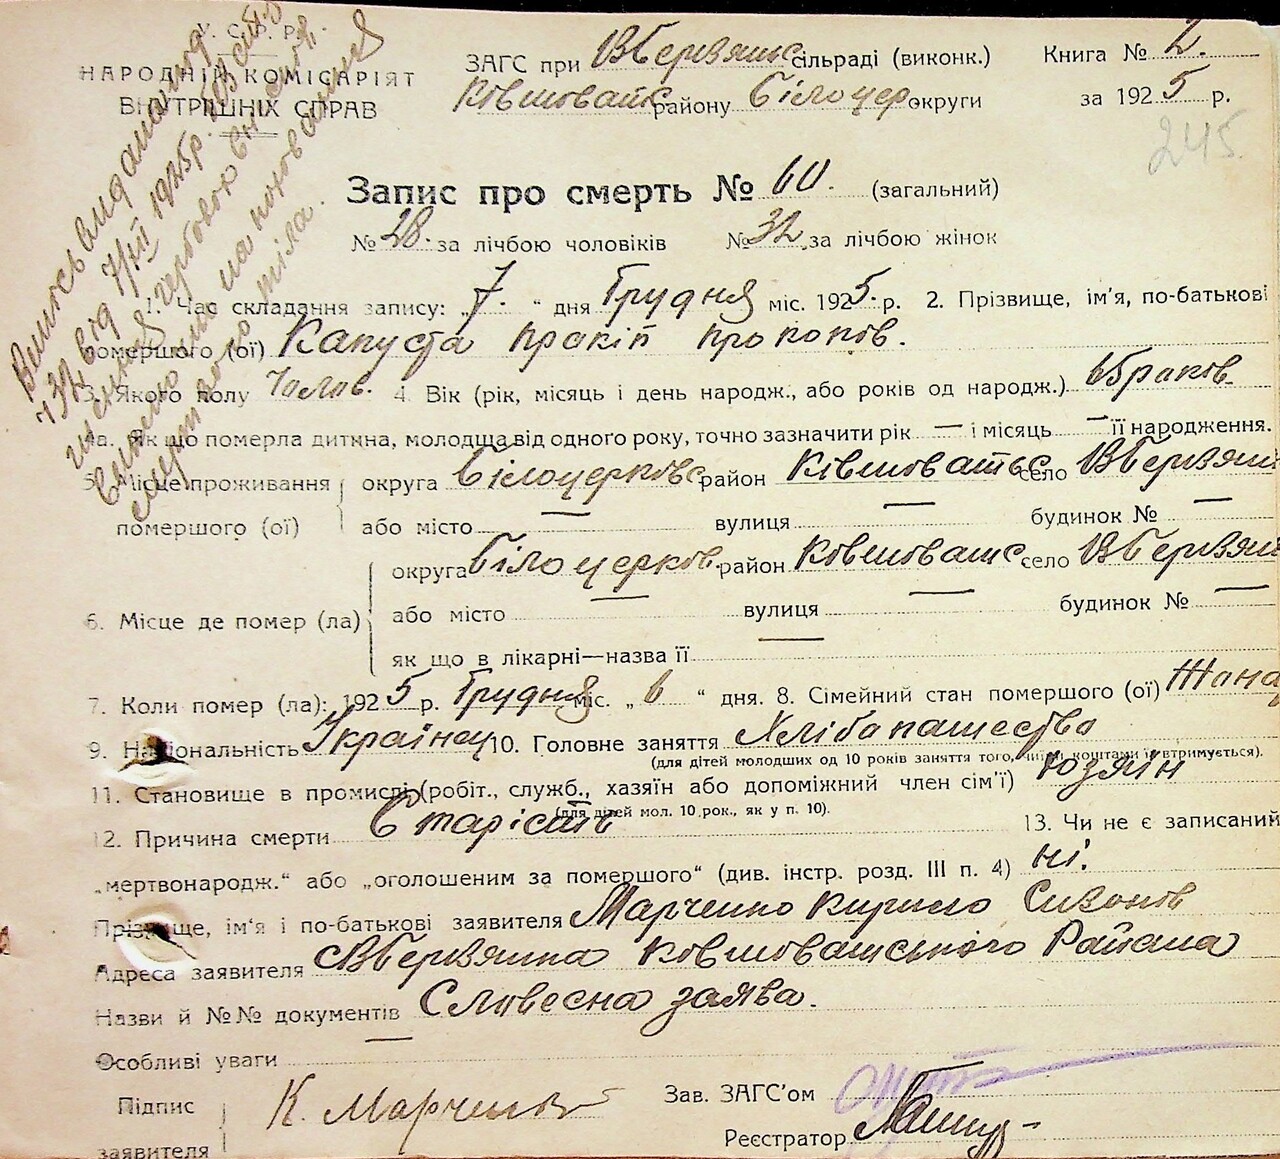 У. С. Р. Р.
НАРОДНІЙ КОМІСАРІЯТ
ВНУТРІШНІХ СПРАВ
ЗАГС при ВБерзянс сільраді (виконк.)
Ковшоватс району Білоцер. округи
Книга № 2.
за 1925 р.
245.
Випись видана під
№ 32 від 7/ХІІ 1925р.
смертного тіла.
Запис про смерть № 60. (загальний)
№ 28. за лічбою чоловіків № 32 за лічбою жінок
1. Час складання запису: „7.“ дня Грудня міс. 1925. р. 2. Прізвище, ім'я, по-батькові
помершого (ої) Капуста Пракіп Прокопів.
3. Якого полу Чолов. 4. Вік (рік, місяць і день народж., або років од народж.) 65 раков
4а. Як що померла дитина, молодща від одного року, точно зазначити рік — і місяць — її народження.
5. Місце проживання округа Білоцерковс район Ковшоватс село ВБерзян
помершого (ої) або місто — вулиця — будинок № —
округа Білоцерков. район Ковшоватс село ВБерзян
6. Місце де помер (ла) або місто — вулиця — будинок № —
як що в лікарні—назва її —
7. Коли помер (ла): 1925 р. Грудня міс. „6“ дня. 8. Сімейний стан помершого (ої) Жона
9. Національність Українец 10. Головне заняття Хлібапашество
(для дітей молодших од 10 років заняття того, чиїми коштами їх втримується).
11. Становище в промислі (робіт., служб., хазяїн або допоміжний член сім'ї) Хозяїн
(для дітей мол. 10 рок., як у п. 10).
12. Причина смерти Старість 13. Чи не є записаний
„мертвонародж.“ або „оголошеним за помершого“ (див. інстр. розд. III п. 4) ні.
Прізвище, ім'я і по-батькові заявителя Марченко Кирило Сизонів
Адреса заявителя с ВБерзянка Ковшоватського Района
Назви й №№ документів Словесна заява.
Особливі уваги —
Підпис
заявителя К. Марченко
Зав. ЗАГС'ом
Реєстратор